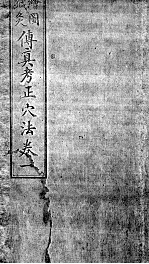 繪圖
鍼灸
傳真考正穴法卷一